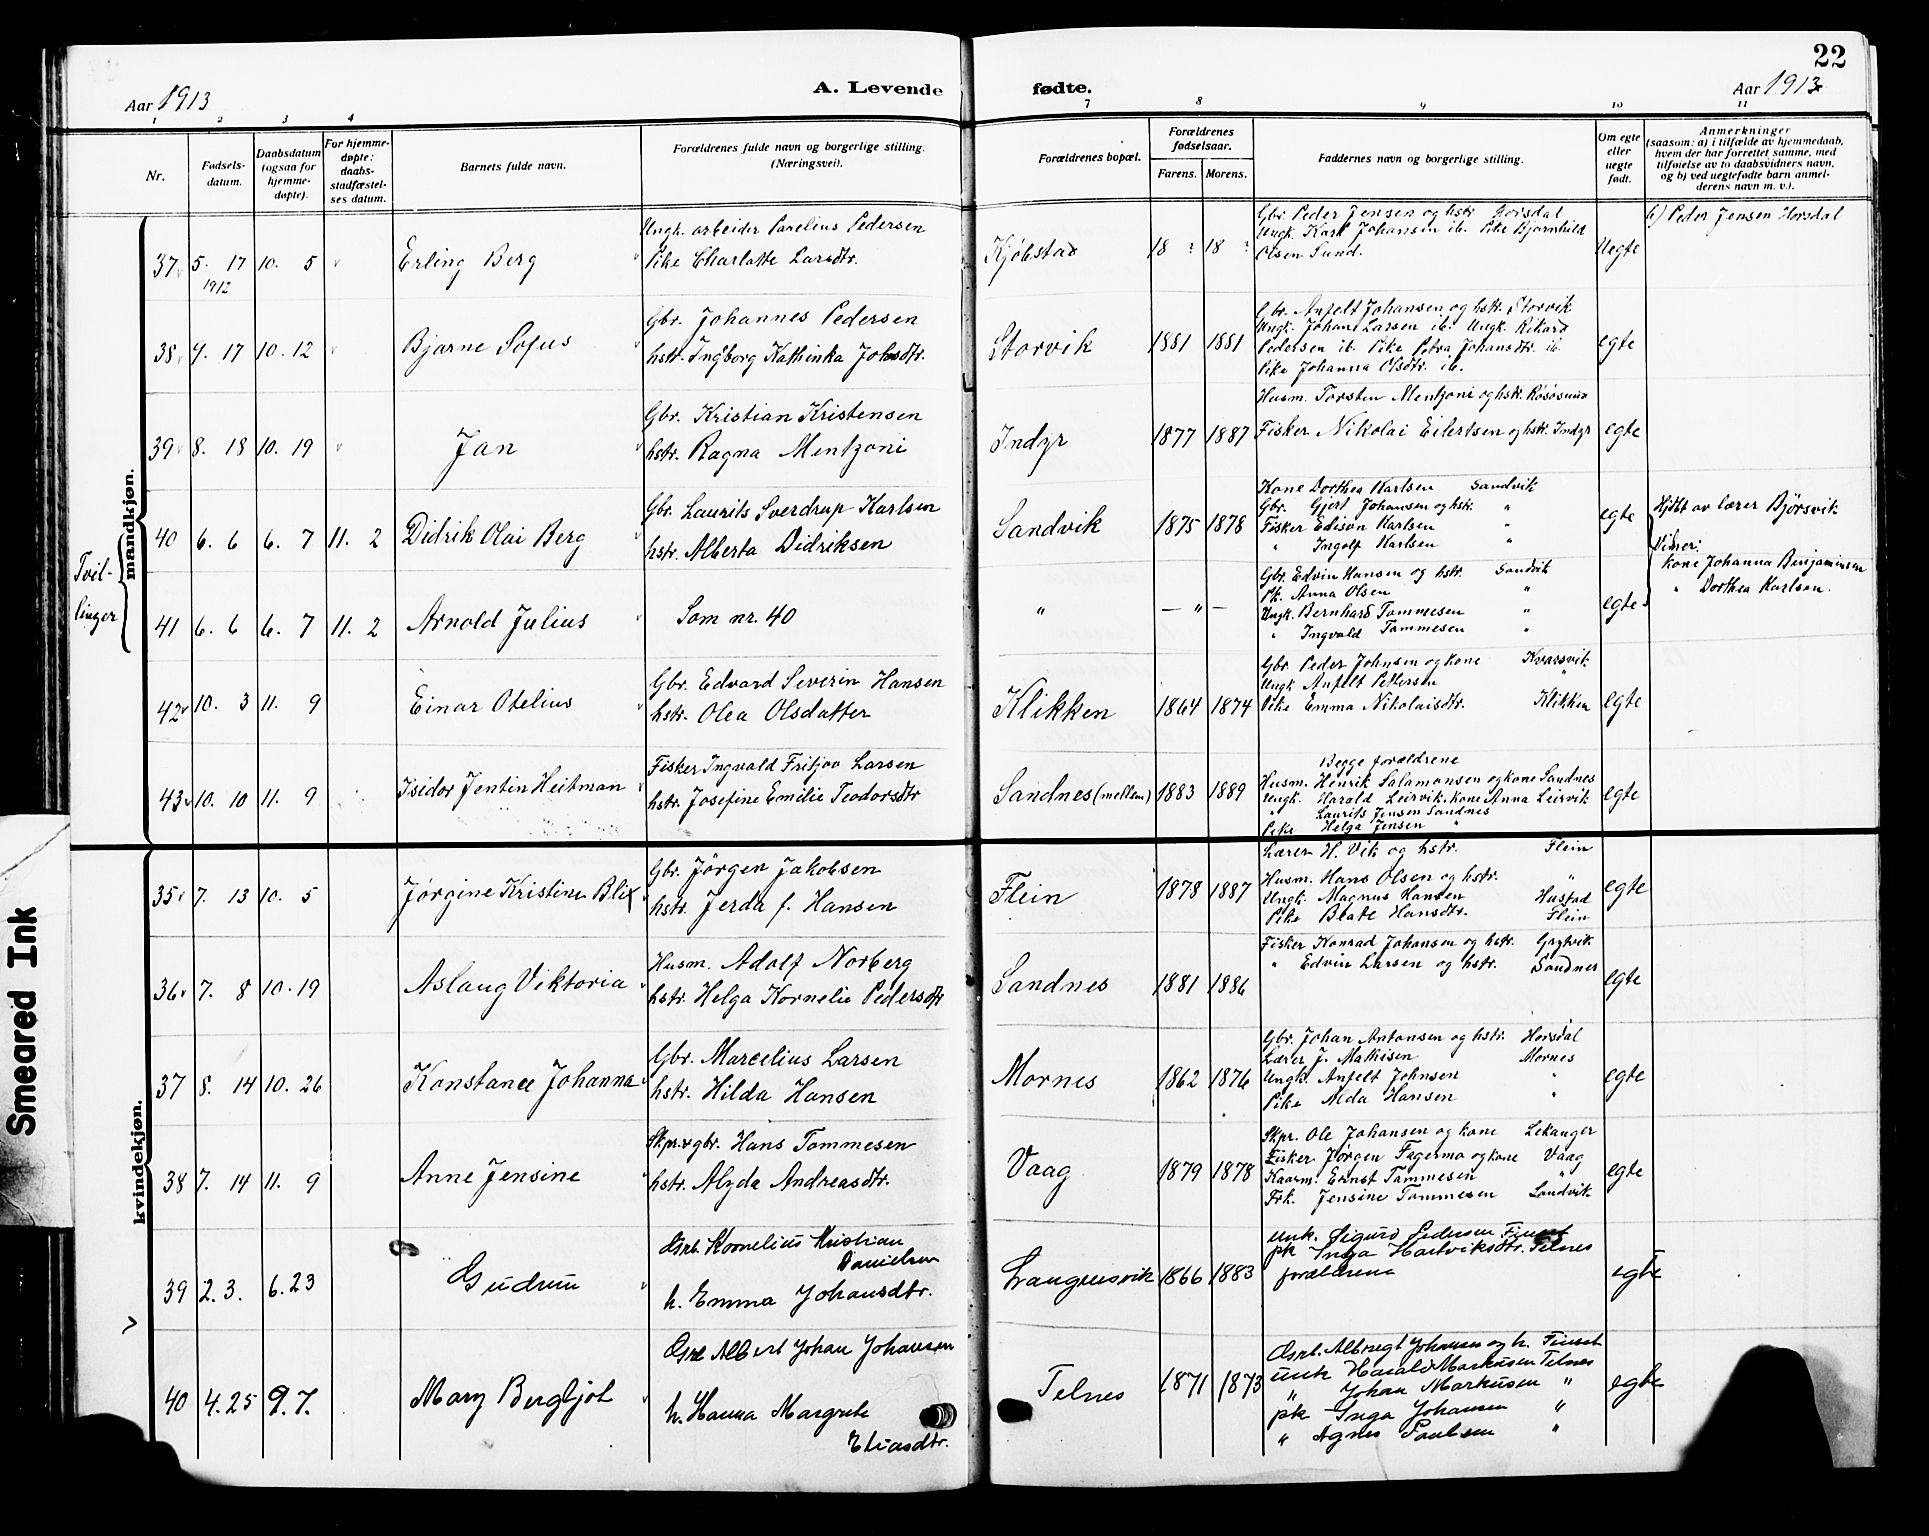 22
Aar 1913
A. Levende
fødte.
Aar 1913
1 2 3 4 7 8 9 10 11
Nr.
Fødsels-
datum.
Daabsdatum
(ogsaa for
hjemme-
døpte).
For hjemme-
døpte:
daabs-
stadfæstel-
ses datum.
Barnets fulde navn.
Forældrenes fulde navn og borgerlige stilling.
(Næringsvei).
Forældrenes bopæl.
Forældrenes
fødselsaar.
Farens. Morens.
Faddernes navn og borgerlige stilling.
Om egte
eller
uegte
født.
Anmerkninger
(saasom: a) i tilfælde av hjemmedaab,
hvem der har forrettet samme, med
tilføielse av to daabsvidners navn,
og b) ved uegtefødte barn anmel-
derens navn m. v.).
mandkjøn.
37 5. 17 10. 5 Erling Berg
1912
Ungk. arbeider Parelius Pedersen
Pike Charlotte Larsdtr.
Kjøbstad 18 ? 18 ?
Gbr. Peder Jensen og hstr Horsdal
Ungk. Karl Johansen ib. Pike Bjørnhild
Olsen Sund.
Uegte
b) Peder Jensen Horsdal
38 9. 17 10. 12 Bjarne Sofus
Gbr. Johannes Pedersen
hstr. Ingborg Kathinka Johsdtr.
Storvik 1881 1881
Gbr. Anfelt Johansen og hstr. Storvik
Ungk. Johan Larsen ib. Ungk. Rikard
Pedersen ib. Pike Petra Johansdtr. ib.
Pike Johanna Olsdtr. ib.
egte
39 8. 18 10. 19 Jan
Gbr. Kristian Kristensen
hstr. Ragna Mentzoni
Indyr 1877 1887
Husm. Torsten Mentzoni og hstr. Røsøsund
Fisker Nikolai Eilertsen og hstr. Indyr
egte
Tvil-
linger
40 6. 6 6. 7 11. 2 Didrik Olai Berg
Gbr. Laurits Sverdrup Karlsen
hstr. Alberta Didriksen
Sandvik 1875 1878
Kone Dorthea Karlsen Sandvik
Gbr. Gjert Johansen og hstr. "
Fisker Edison Karlsen "
" Ingolf Karlsen "
egte
Hjdbt av lærer Bjørsvik
Vidner:
kone Johanna Benjaminsen
" Dorthea Karlsen.
41 6. 6 6. 7 11. 2 Arnold Julius
Som nr. 40
" — " —
Gbr. Edvin Hansen og hstr. Sandvik
Pk. Anna Olsen "
Ungk. Bernhard Tommesen "
" Ingvald Tommesen "
egte
42 10. 3 11. 9 Einar Otelius
Gbr. Edvard Severin Hansen
hstr. Olea Olsdatter
Klikken 1864 1874
Gbr. Peder Johnsen og kone Kvarsvik
Ungk Anfelt Pettersen "
Pike Emma Nikolaisdtr. Klikken
egte
43 10. 10 11. 9 Isidor Jentin Heitman
Fisker Ingvald Fritjov Larsen
hstr. Josefine Emilie Teodorsdtr
Sandnes (mellem) 1883 1889
Begge forældrene
Husm. Henrik Salamonsen og kone Sandnes
Ungk. Harald Leirvik. kone Anna Leirvik
" Laurits Jensen Sandnes
Pike Helga Jensen "
egte
kvindekjøn.
35 7. 13 10. 5 Jørgine Kristine Blix
Gbr. Jørgen Jakobsen
hstr. Jerda f. Hansen
Flein 1878 1887
Lærer H. Vik og hstr. Flein
Husm. Hans Olsen og hstr. "
Ungk. Magnus Hansen Hustad
Pike Beate Hansdtr. Flein
egte
36 7. 8 10. 19 Aslaug Viktoria
Husm. Adolf Norberg
hstr. Helga Kornelie Pedersdtr
Sandnes 1881 1886
Fisker Konrad Johansen og hstr.
" Edvin Larsen og hstr. Sandnes
egte
37 8. 14 10. 26 Konstance Johanna
Gbr. Marcelius Larsen
hstr. Hilda Hansen
Mornes 1862 1876
Gbr. Johan Antonsen og hstr. Horsdal
Lærer J. Mathisen Mornes
Ungk. Anfelt Johnsen "
Pike Alda Hansen "
egte
38 7. 14 11. 9 Anne Jensine
Skpr. & gbr. Hans Tommesen
hstr. Alyda Andreasdtr.
Vaag 1879 1878
Skpr. Ole Johansen og kone Lekanger
Fisker Jørgen Fagermo og kone Vaag
Kaarm. Ernst Tommesen "
Frk. Jensine Tommesen Sandvik
egte
39 2. 3. 6. 23 Gudrun
Gsrb. Kornelius Kristian
Danielsen
h. Emma Johansdtr.
Langnesvik 1866 1883
unk. Sigurd Pedersen Finset
pk Inga Hartviksdtr. Telnes
forældrene
egte
40 4. 25 9. 7. Mary Bergljot
Gsrb Albert Johan Johansen
h. Hanna Margrete
Eliasdtr.
Telnes 1871 1873
Gsrb. Albregt Johansen og h. Finset
unk Harald Markusen Telnes
" Johan Markusen "
pk Inga Johansen "
" Agnes Paulsen "
egte
Smeared Ink